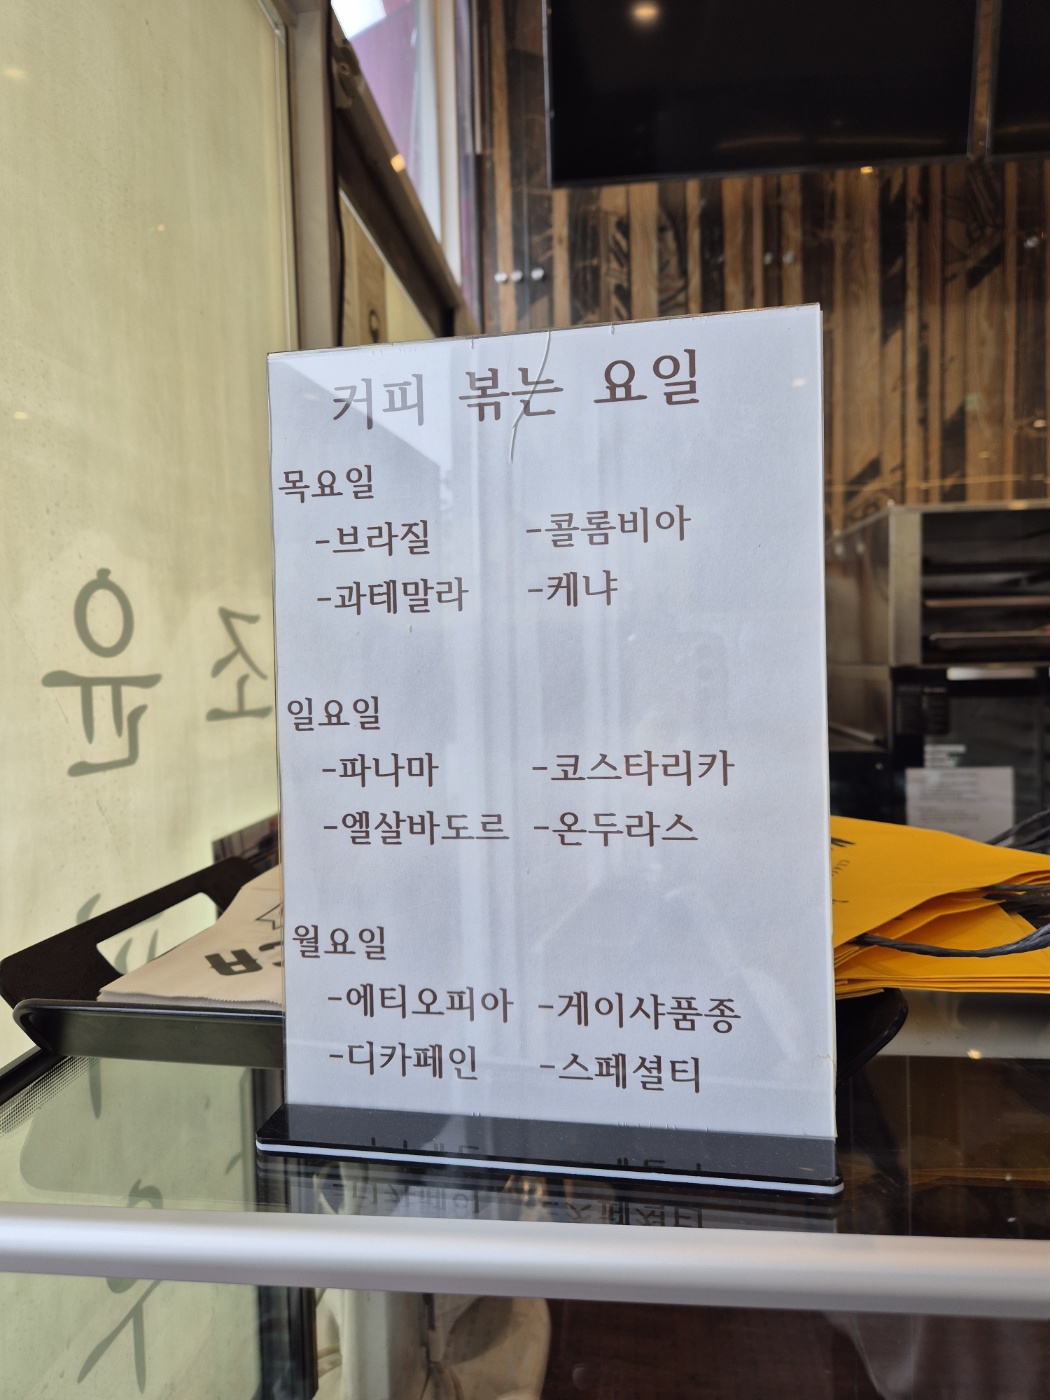 커피 볶는 요일
목요일
-브라질 -콜롬비아
-과테말라 -케냐
일요일
-파나마 -코스타리카
-엘살바도르 -온두라스
월요일
-에티오피아 -게이샤품종
-디카페인 -스페셜티